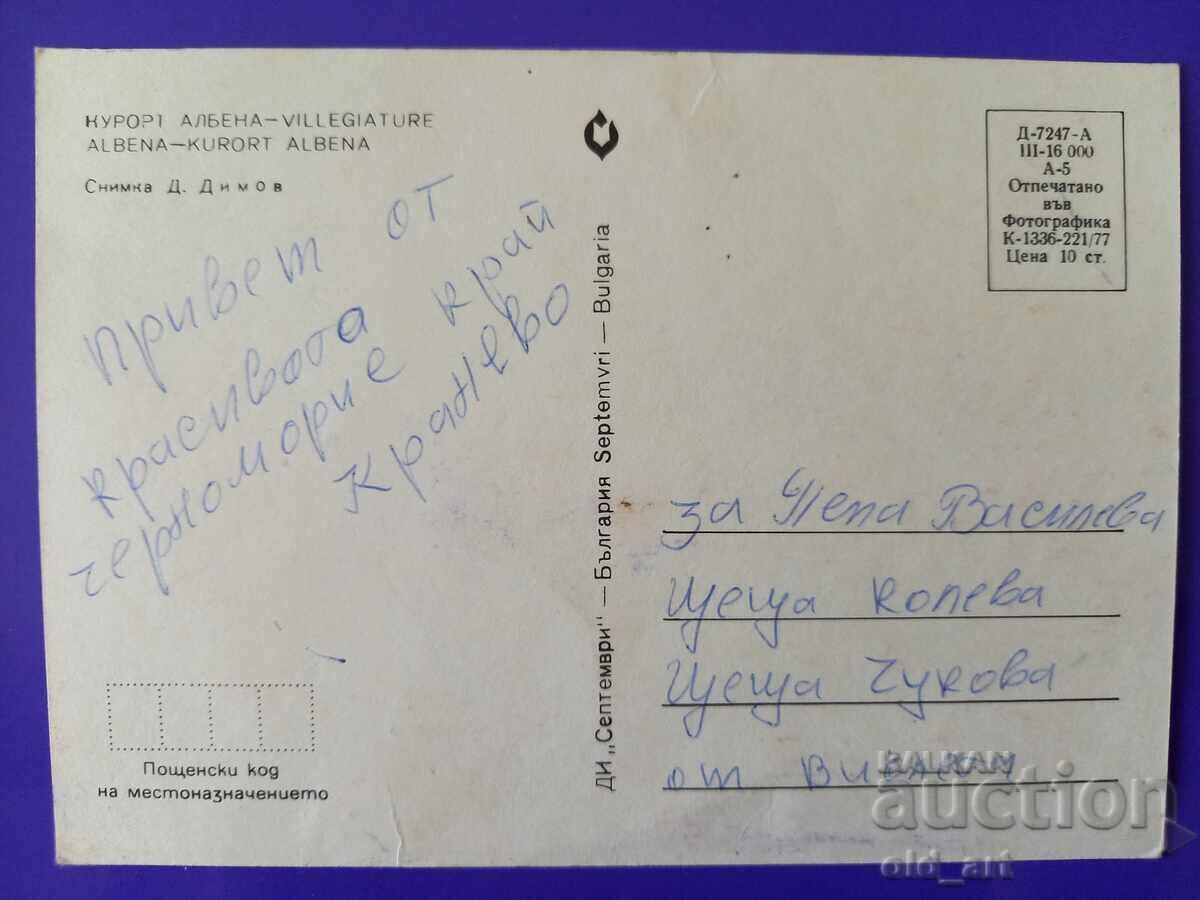 КУРОРТ АЛБЕНА—VILLEGIATURE
ALBENA—KURORT ALBENA
Снимка Д. Димов
Привет от
красивота
черноморие край
Кранево
Пощенски код
на местоназначението
ДИ „Септември" — България Septemvri — Bulgaria
Д-7247-А
III-16 000
А-5
Отпечатано
във
Фотографика
К-1336-221/77
Цена 10 ст.
за Пепа Василева
Цеца Колева
Цеца Чукова
от
BALKAN
auction
old_art